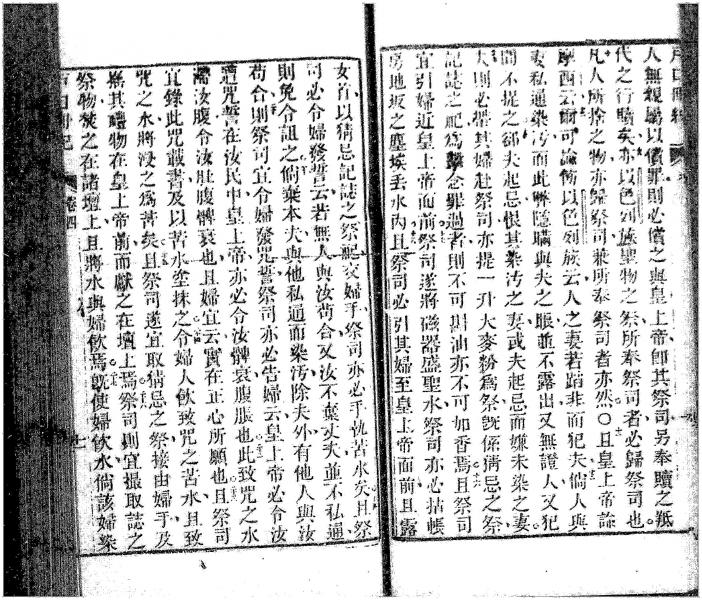 人無親屬以償罪則必償之與皇上帝卽其祭司另奉贖之羝
代之行贖矣亦以色列族聖物之祭所奉祭司者必歸祭司也
凡人所捨之物亦歸祭司兼所奉祭司者亦然○且皇上帝諭
摩西云爾可諭以色列族云人之妻若蹈非而犯夫倘人與
妻私通染污而此弊隱瞞與夫之眼並不露出又無證人又犯
間不捉之卻夫起忌恨其染污之妻或夫起忌而嫌未染之妻
夫則必攜其婦赴祭司亦提一升大麥粉爲祭旣係猜忌之祭
記誌之祀爲念罪過者則不可斟油亦不可加香焉且祭司
宜引婦近皇上帝面前祭司遂將磁器盛聖水祭司亦必拈帳
房地坂之塵埃丟水內且祭司必引其婦至皇上帝面前且露
女首以猜忌記誌之祭祀交婦手祭司亦必手執苦水矣且祭
司必令婦發誓云若無人與汝苟合又汝不棄丈夫並不私通
則免令詛之倘棄本夫與他私通而染污除夫外有他人與汝
苟合則祭司宜令婦發咒誓祭司亦必告婦云皇上帝必令汝
遭咒誓在汝民中皇上帝亦必令汝髀衰腹脹也此致咒之水
瀉汝腹令汝肚腹髀衰也且婦宜云實在正心所願也且祭司
宜錄此咒載書及以苦水塗抹之令婦人飮致咒之苦水且致
咒之水將浸之爲苦矣且祭司遂宜取猜忌之祭接由婦手及
搖其禮物在皇上帝前而獻之在壇上焉祭司則宜撮取誌之
祭物焚之在諸壇上且將水與婦飮焉旣使婦飮水倘該婦染
卷四